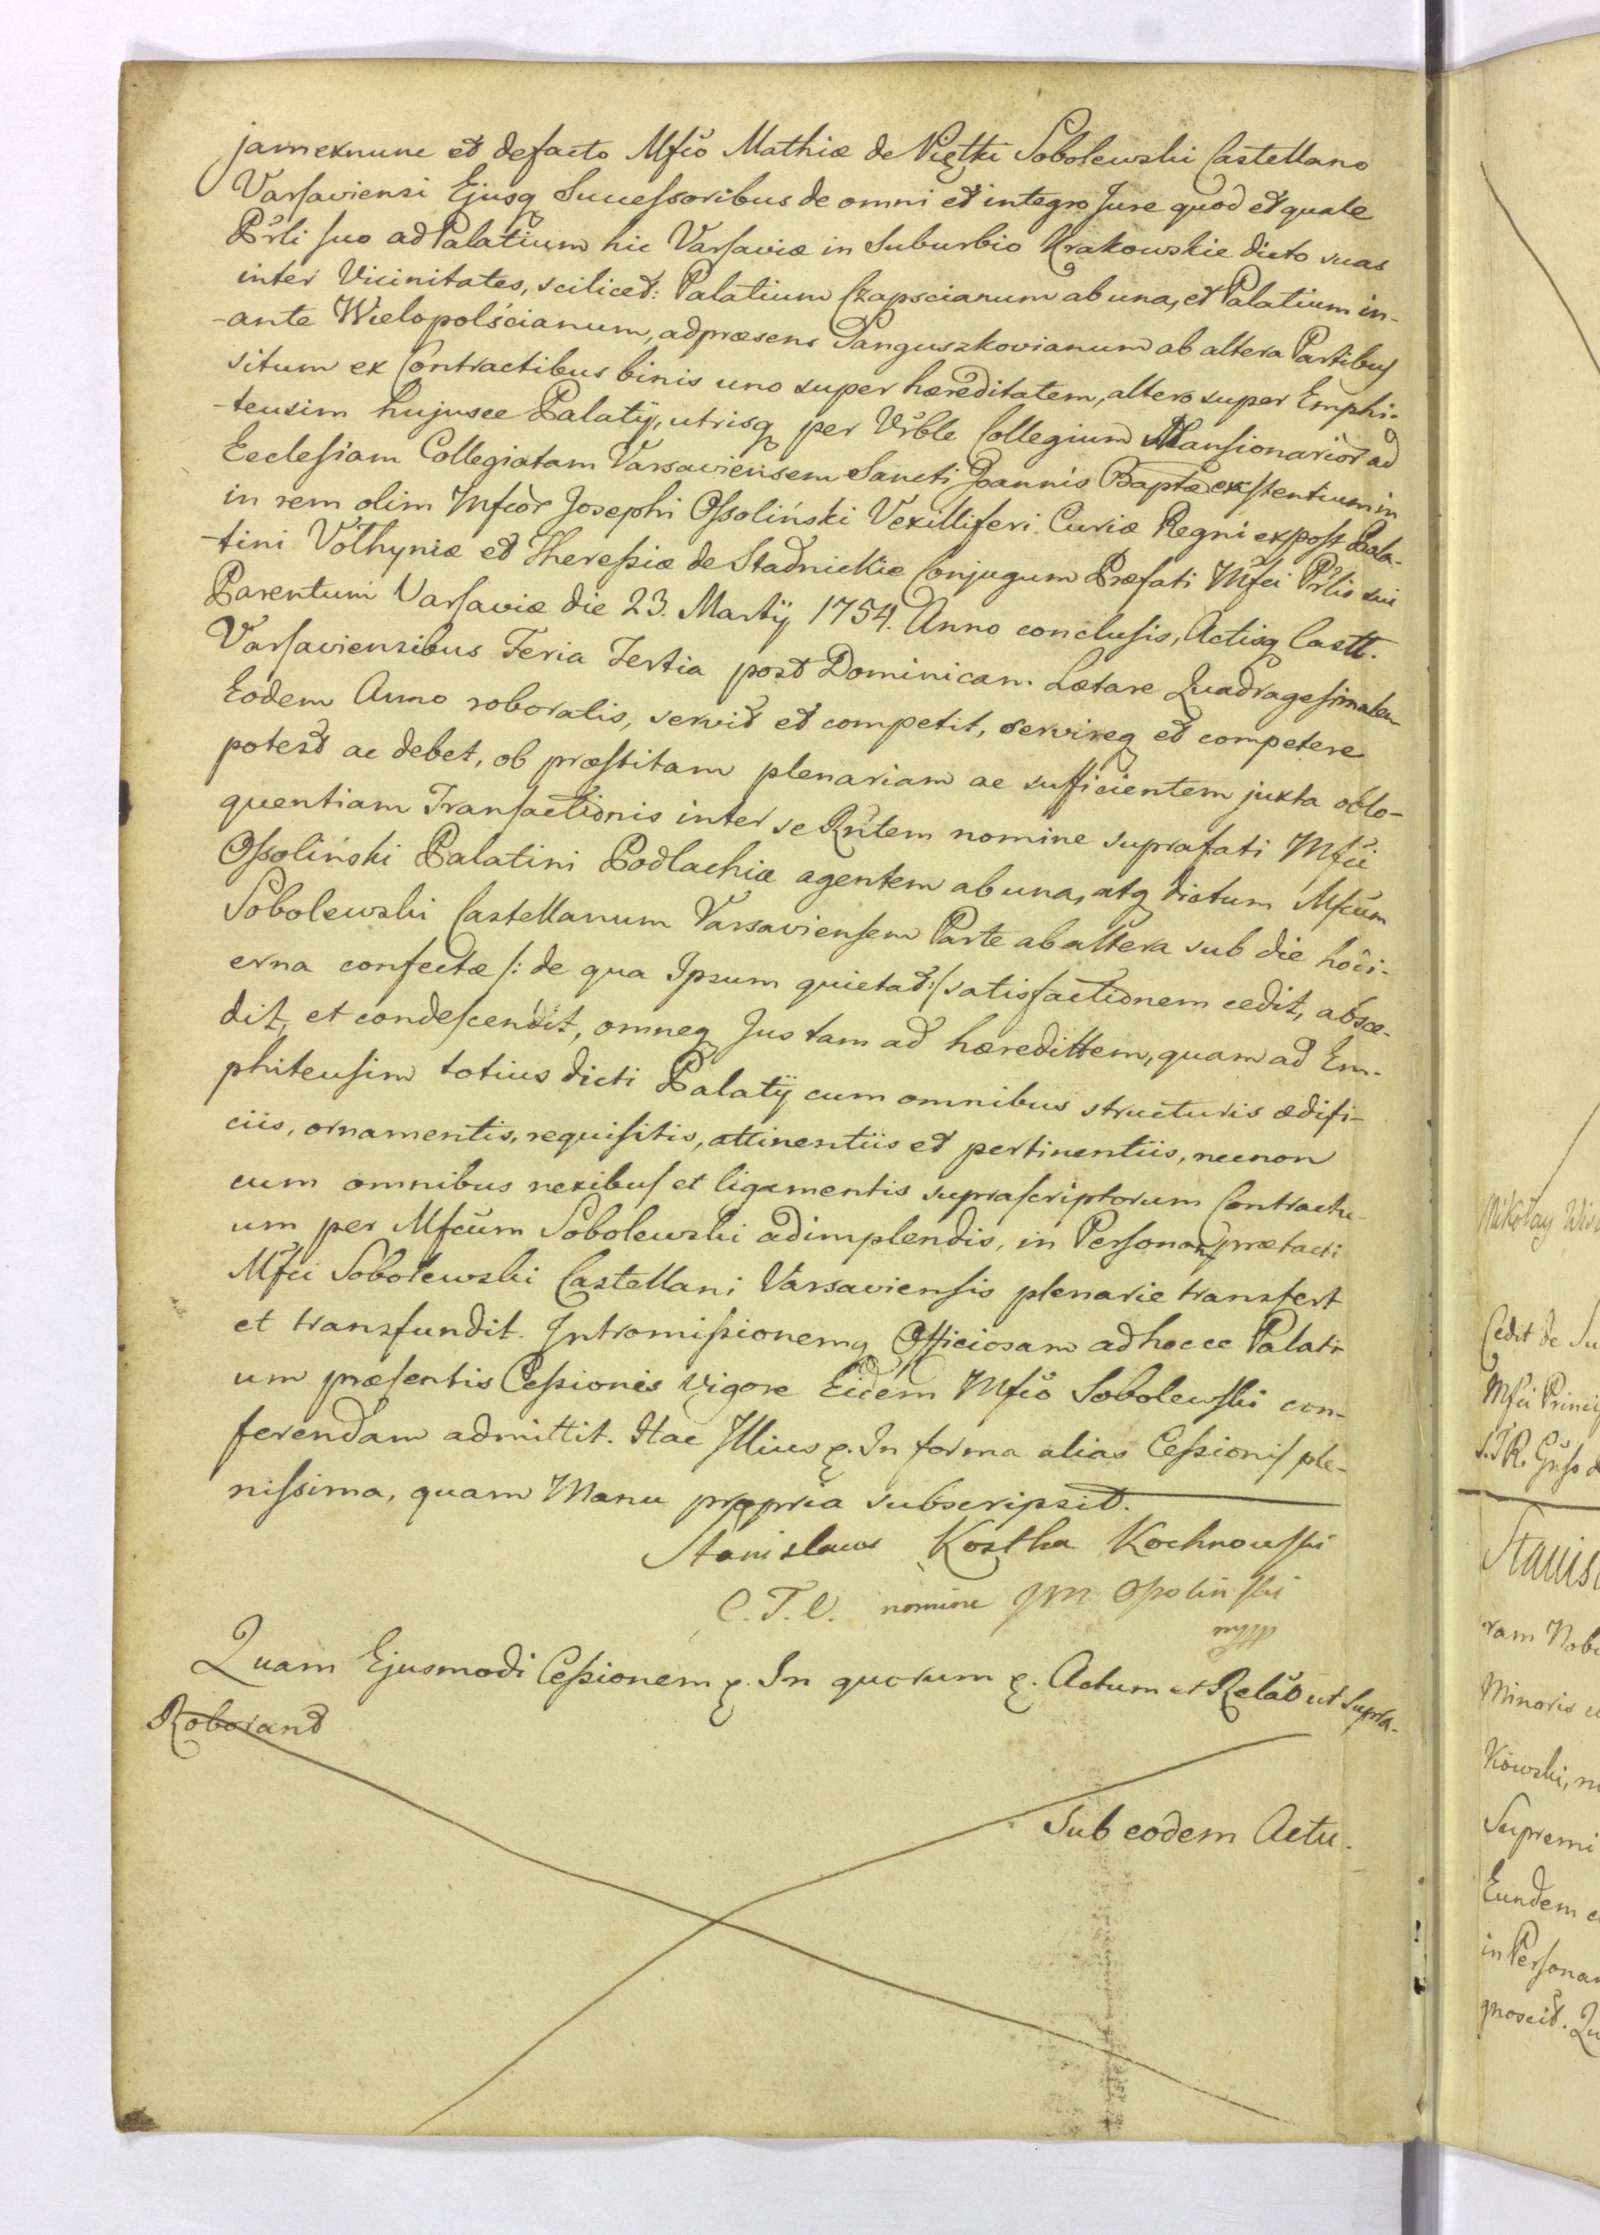 jamexnunc et defacto Mfco Mathiæ de Piętki Sobolewski Castellano
Varsaviensi Ejusq Successoribus de omni et integro Jure quod et quale
Prli suo ad Palatium hic Varsaviæ in Suburbio Krakowskie dicto suas
inter Vicinitates, scilicet: Palatium Czapscianum ab una, et Palatium in-
-ante Wielopolścianum, adpræsens Sanguszkovianum ab altera Partibus
situm ex Contractibus binis uno super hæreditatem, altero super Emphi-
-teusim hujusce Palatij, utrisq per Vrble Collegium Mansionarior ad
Ecclesiam Collegiatam Varsaviensem Sancti Joannis Baptæ existentium in
in rem olim Mfcor Josephi Ossoliński Vexilliferi Curiæ Regni expost Pala-
-tini Volhyniæ et Theresiæ de Stadnickie Conjugum Præfati Mfci Prlis sui
Parentum Varsaviæ die 23. Martij 1754. Anno conclusis, Actisq Castt.
Varsaviensibus Feria Tertia post Dominicam Lætare Quadragesimalem
Eodem Anno roboratis, servit et competit, servireq et competere
potest ac debet, ob præstitam plenariam ac sufficientem juxta oblo-
quentiam Transactionis inter se Rntem nomine suprafati Mfci
Ossoliński Palatini Podlachiæ agentem ab una, atq dictum Mfcum
Sobolewski Castellanum Varsaviensem Parte ab altera sub die hoći-
erna confectæ /: de qua Ipsum quietat :/ satisfactionem cedit, absce-
dit, et condescendit, omneq Jus tam ad hæredittem, quam ad Em-
phiteusim totius dicti Palatij cum omnibus structuris ædifi-
ciis, ornamentis, requisitis, attinentiis et pertinentiis, necnon
cum omnibus nexibus et ligamentis suprascriptorum Contractu-
um per Mfcum Sobolewski adimplendis, in Personam prætacti
Mfci Sobolewski Castellani Varsaviensis plenarie transfert
et transfundit. Intromissionemq Officiosam ad hocce Palati-
um præsentis Cessionis vigore Eidem Mfco Sobolewski con-
ferendam admittit. Hac Illius p. In forma alias Cessionis ple-
nissima, quam Manu propria subscripsit.
Stanislaus Kostka Kochnowski
C. T. V. nomine JM Ossolinski
Quam Ejusmodi Cessionem p. In quorum p. Actum et Relao ut Supra.
Roborand
Sub eodem Actu.
Mikołay
Cedit de
Mfci
Stanis
ram
Minoris
kowski,
Supremi
Eundem
in Personam
gnoscit.